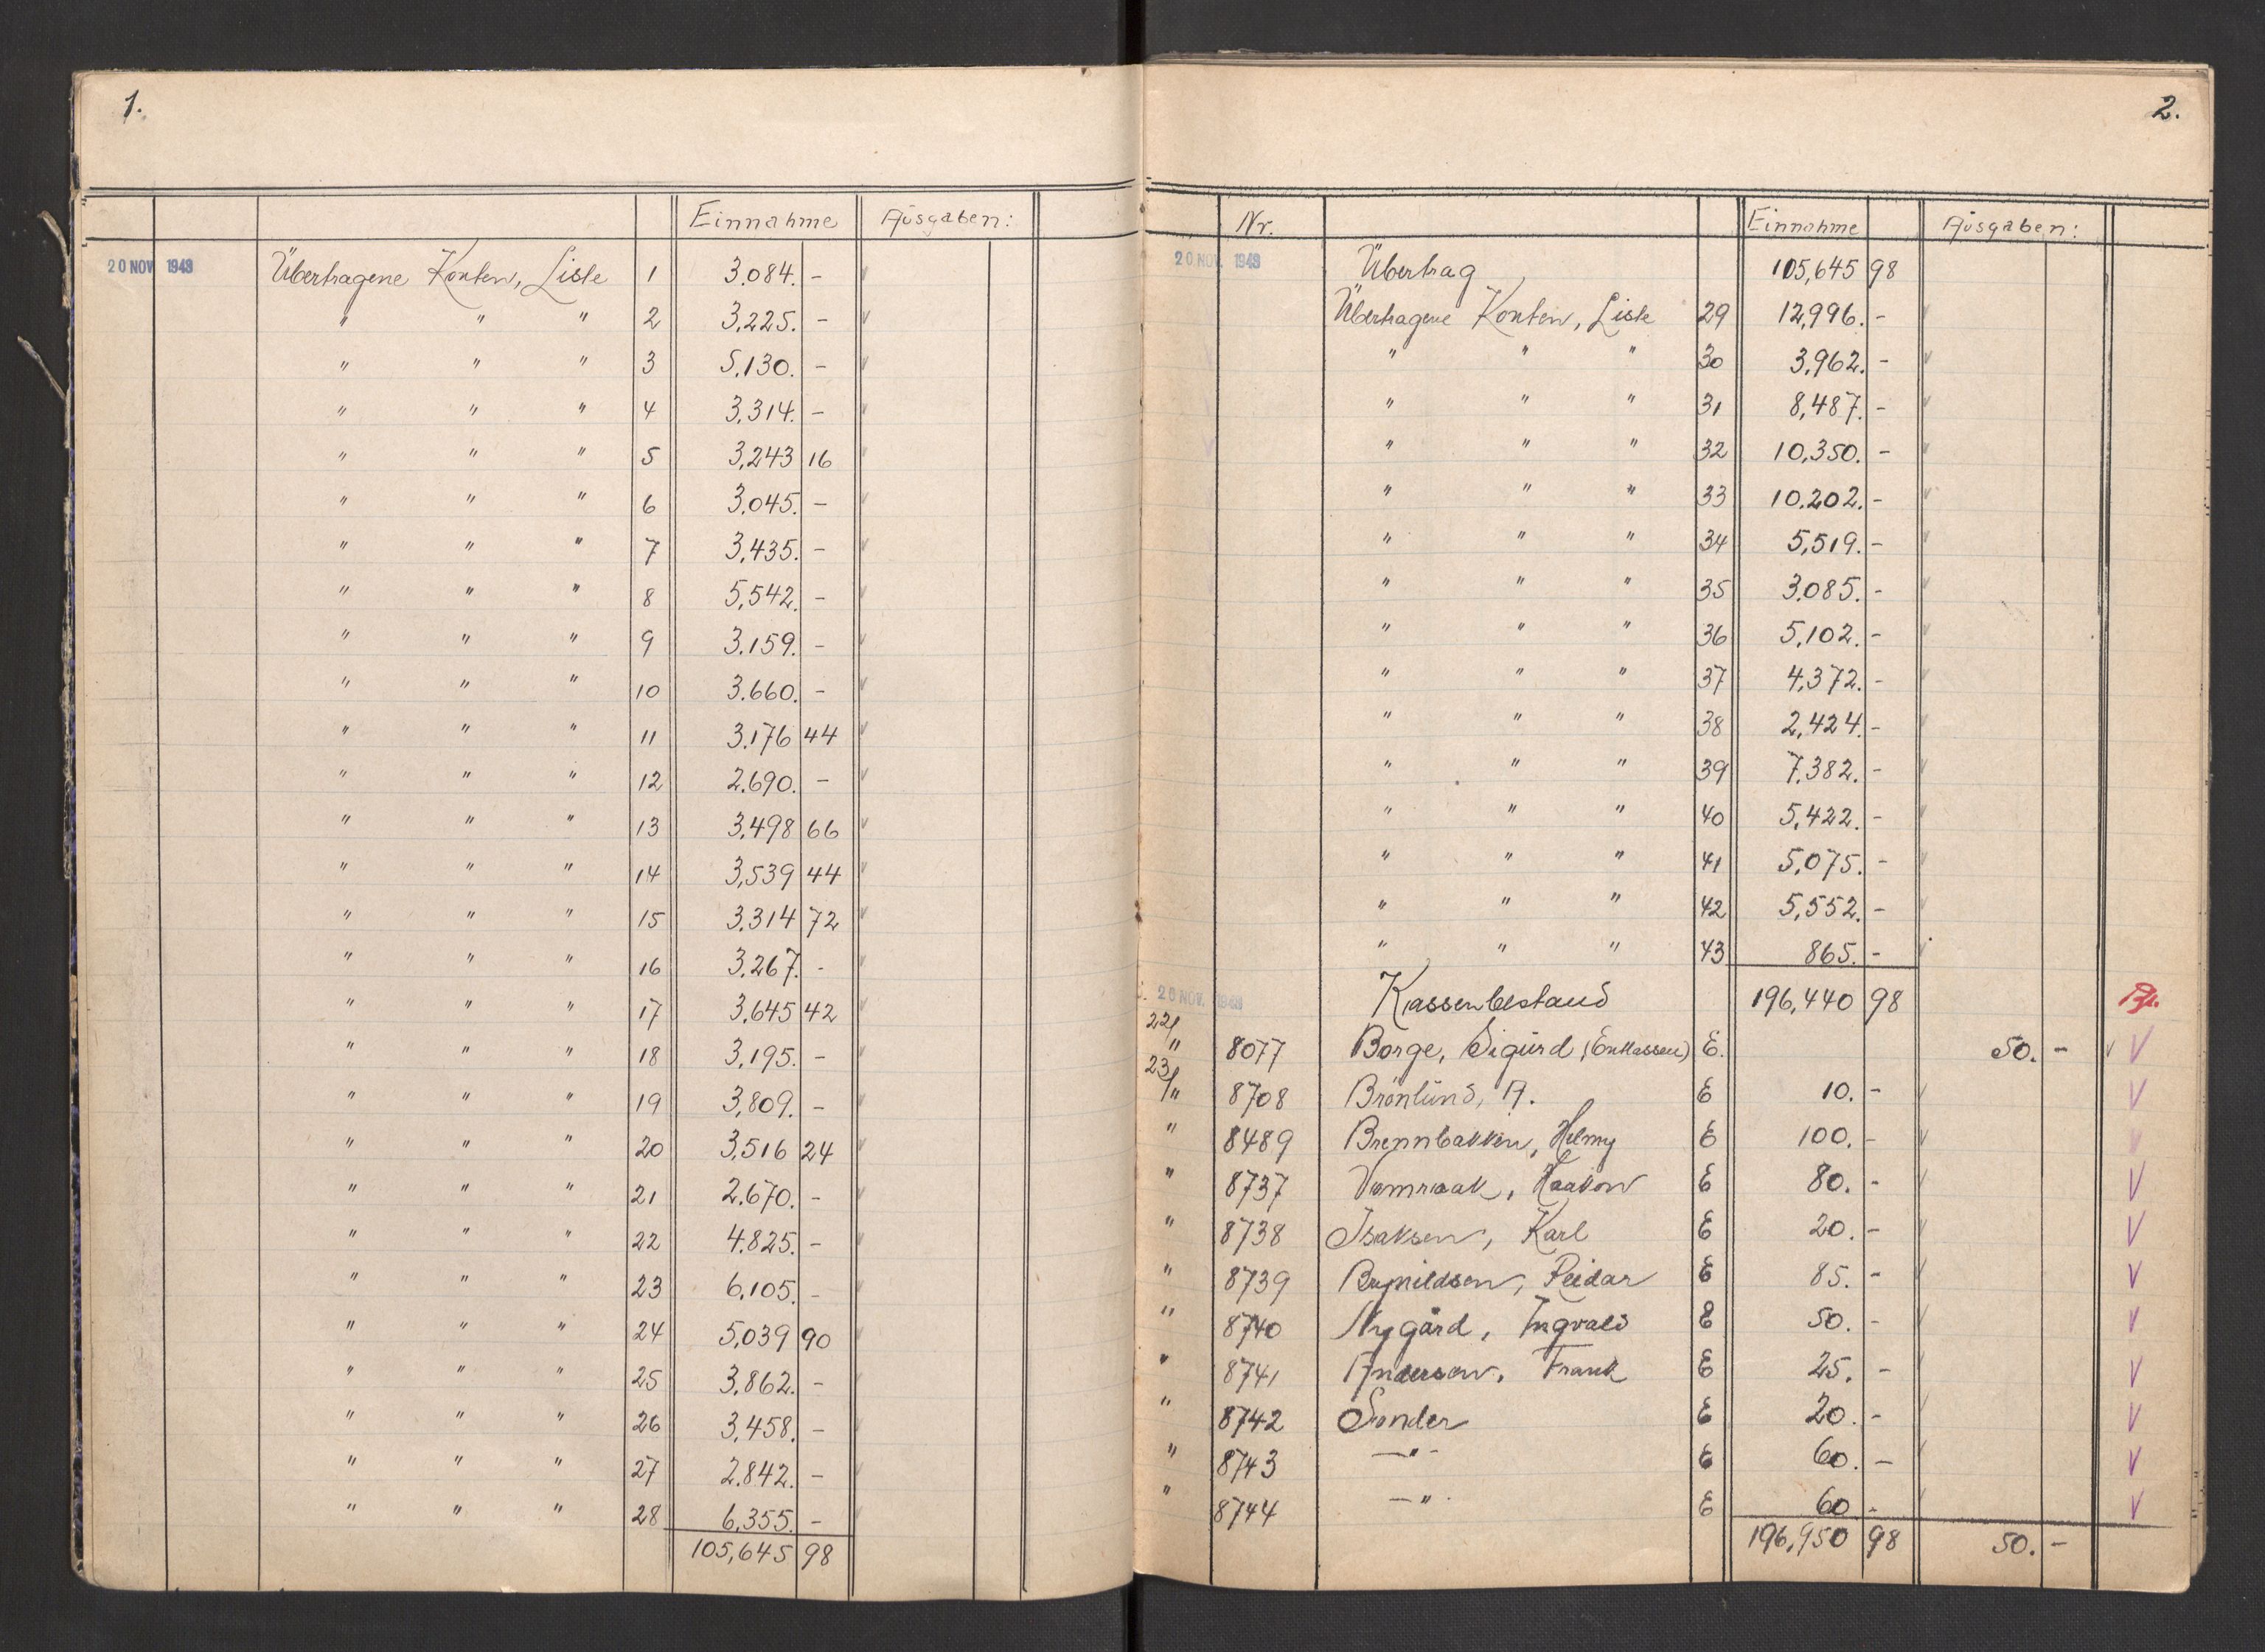 1.
Einnahme Ausgaben:
20 NOV. 1943 Übertragene Konten, Liste 1 3.084. -
" " " 2 3,225. -
" " " 3 5,130. -
" " " 4 3,314. -
" " " 5 3,243 16
" " " 6 3,045. -
" " " 7 3,435. -
" " " 8 5,542. -
" " " 9 3.159. -
" " " 10 3.660. -
" " " 11 3.176 44
" " " 12 2.690. -
" " " 13 3,498 66
" " " 14 3,539 44
" " " 15 3.314 72
" " " 16 3.267. -
" " " 17 3,645 42
" " " 18 3,195. -
" " " 19 3,809. -
" " " 20 3,516 24
" " " 21 2.670. -
" " " 22 4.825. -
" " " 23 6,105. -
" " " 24 5,039 90
" " " 25 3,862. -
" " " 26 3,458. -
" " " 27 2.842. -
" " " 28 6,355. -
105,645 98
2.
Nr. Einnahme Ausgaben:
20 NOV. 1943 Übertrag 105,645 98
Übertragene Konten, Liste 29 12,996. -
" " " 30 3,962. -
" " " 31 8,487. -
" " " 32 10,350. -
" " " 33 10.202. -
" " " 34 5,519. -
" " " 35 3.085. -
" " " 36 5,102. -
" " " 37 4,372. -
" " " 38 2,424. -
" " " 39 7.382. -
" " " 40 5,422. -
" " " 41 5,075. -
" " " 42 5,552. -
" " " 43 865. -
20 NOV. 1943 Kassenbestand 196,440 98
22/11 8077 Borge, Sigurd (Entlassen) E. 50. -
23/11 8708 Brönlund, A. E 10. -
" 8489 Brennbakken, Helmy E 100. -
" 8737 Vamraak, Haakon E 80. -
" 8738 Isaksen, Karl E 20. -
" 8739 Brynildsen, Reidar E 85. -
" 8740 Nygård, Ingvald E 50. -
" 8741 Anderson, Frank E 25. -
" 8742 Sonder E 20. -
" 8743 -"- E 60. -
" 8744 -"- E 60 -
196,950 98 50. -